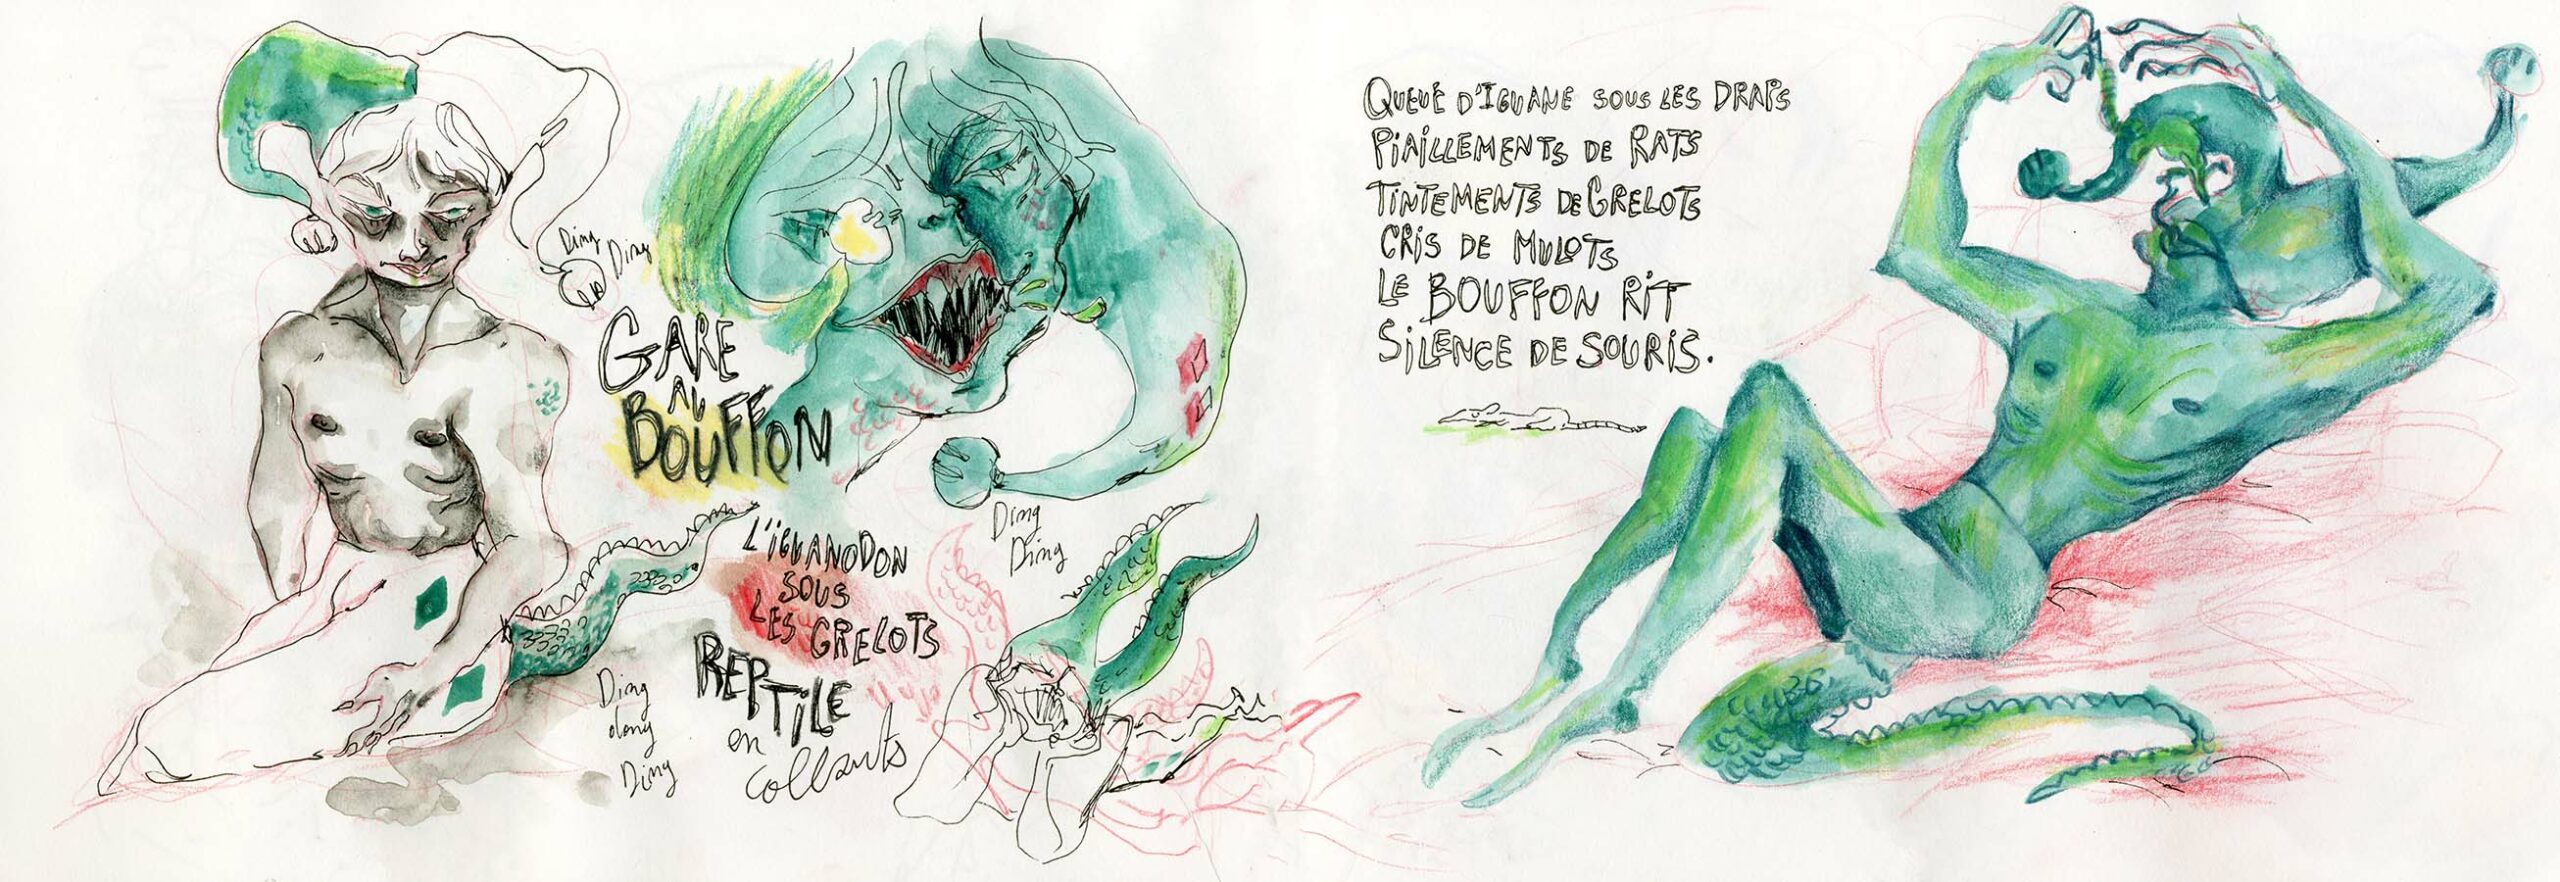 Ding
Ding
GARE
AU
BOUFFON
L'IGUANODON
SOUS
LES GRELOTS
REPTILE
en
collants
Ding
dong
Ding
Ding
Ding
QUEUE D'IGUANE SOUS LES DRAPS
PIAILLEMENTS DE RATS
TINTEMENTS DE GRELOTS
CRIS DE MULOTS
LE BOUFFON RIT
SILENCE DE SOURIS.